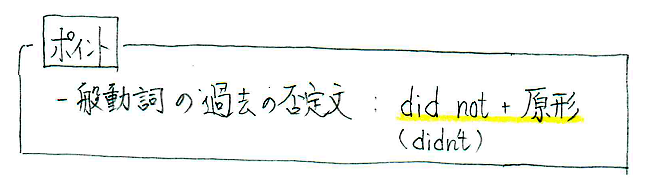 ポイント
一般動詞の過去の否定文 : did not + 原形
(didn't)